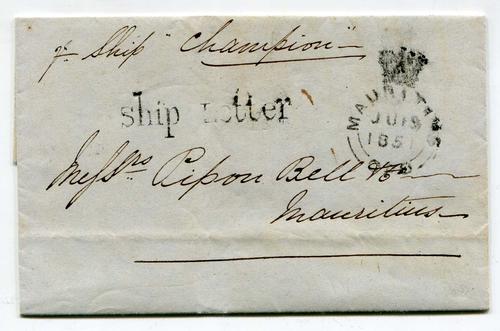 pr Ship "Champion"
ship letter
MAURITIUS
JU 9
1851
Messrs Pipon Bell & Co
Mauritius